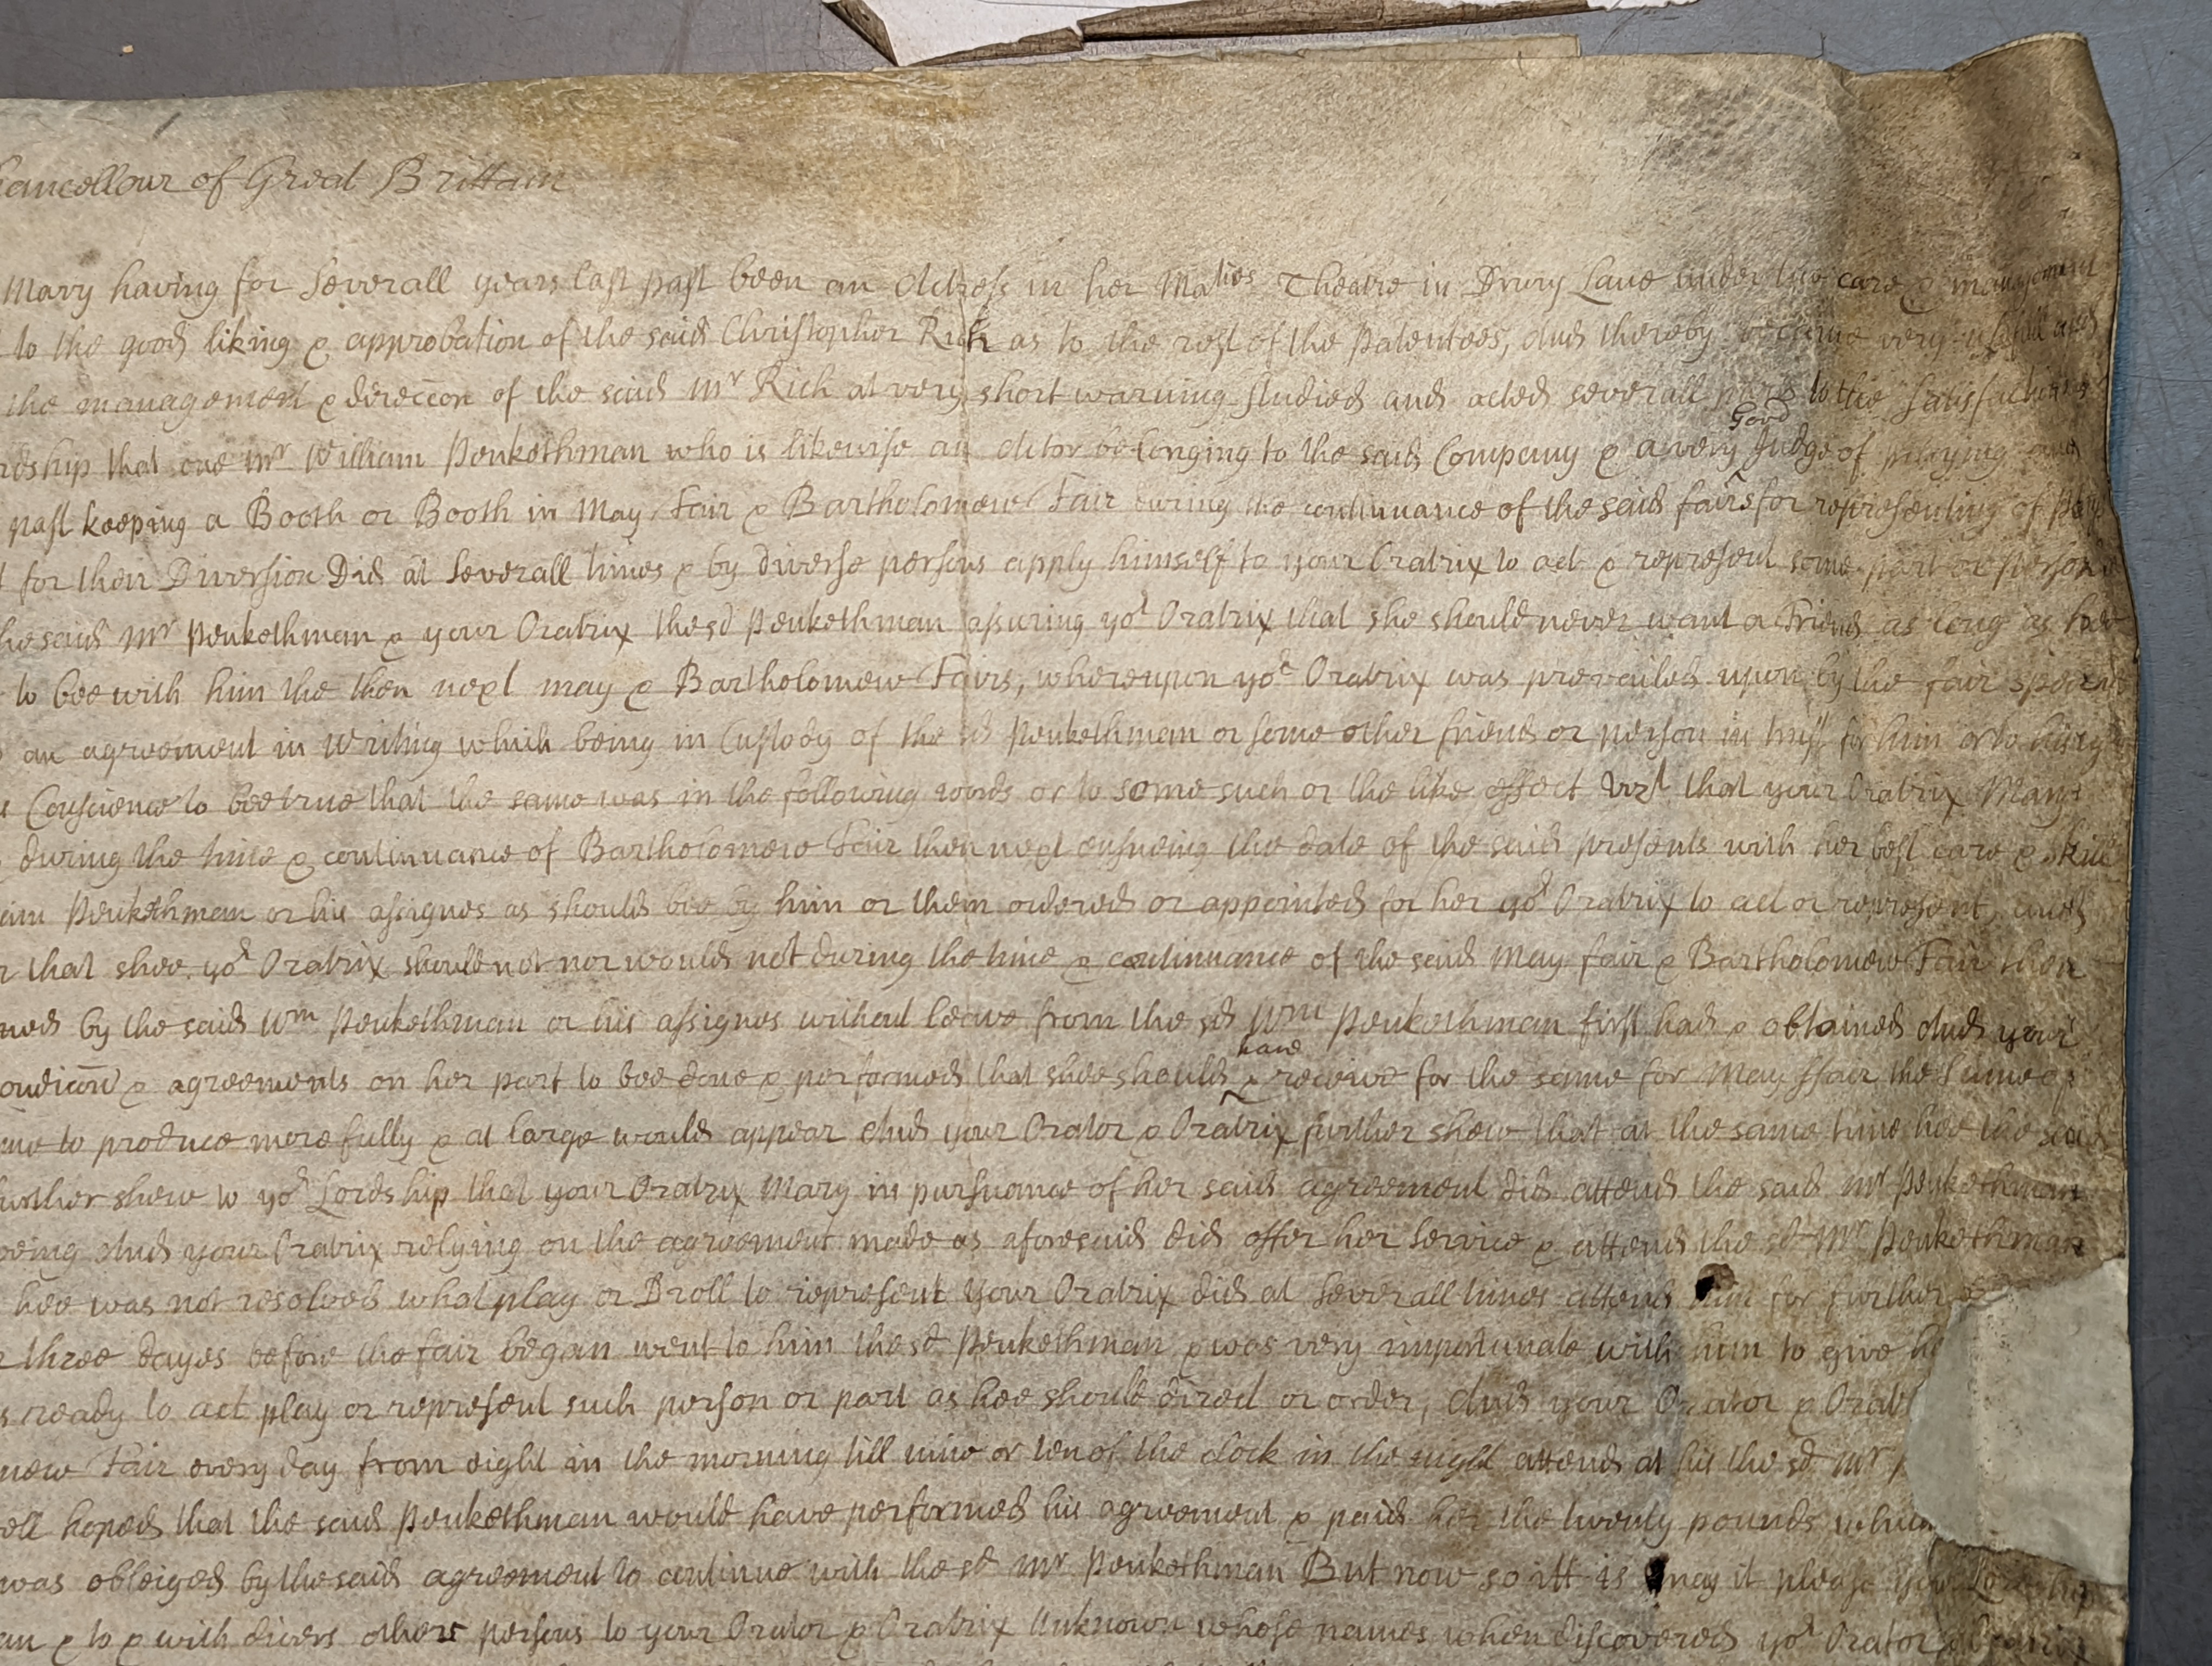 hancellour of Great Brittain
Mary having for severall years last past been an Actress in her Maties Theatre in Drury Lane under the care & management
to the good liking & approbation of the said Christopher Rich as to the rest of the Patentees, And thereby became very usefull and
the management & direccon of the said Mr Rich at very short warning studied and acted severall parts to the satisfaction of
rdship that one Mr William Penkethman who is likewise an Actor belonging to the said Company & a very Good Judge of playing and
past keeping a Booth or Booth in May Fair & Bartholomew Fair during the continuance of the said fairs for representing of Plays
for their Diversion Did at severall times & by diverse persons apply himself to your Oratrix to act & represent some part or person
he said Mr Penkethman & your Oratrix the sd Penkethman assuring yor Oratrix that she should never want a Friend as long as hee
to bee with him the then next may & Bartholomew Fairs, whereupon yor Oratrix was prevailed upon by the fair
an agreement in writing which being in Custody of the sd Penkethman or some other friend or person in trust for him or to his
Conscience to bee true that the same was in the following words or to some such or the like effect vizt that your Oratrix Mary
during the time & continuance of Bartholomew Fair then next ensueing the date of the said presents with her best care & skill
iam Penkethman or his assignes as should bee by him or them ordered or appointed for her yor Oratrix to act or represent, and
that shee yor Oratrix should not nor would not during the time & continuance of the said May fair & Bartholomew Fair then
ned by the said Wm Penkethman or his assignes without leave from the sd Wm Penkethman first had & obtained And your
ondicon & agreements on her part to bee done & performed that shee should have & receive for the same for May ffair the Sume of
me to produce more fully & at large would appear And your Orator & Oratrix further shew that at the same time hee the said
further shew to yor Lordship that your Oratrix Mary in pursuance of her said agreement did attend the said Mr Penkethman
being And your Oratrix relying on the agreement made as aforesaid did offer her service & attend the sd Mr Penkethman
hee was not resolved what play or Droll to represent your Oratrix did at severall times attend him for further
three dayes before the fair began went to him the sd Penkethman & was very importunate with him to give he
s ready to act play or represent such person or part as hee should direct or order, And your Orator & Orat
mew Fair every day from eight in the morning till nine or ten of the clock in the night attend at his the sd Mr
ell hoped that the said Penkethman would have performed his agreement & paid her the twenty pounds which
was obleiged by the said agreement to continue with the sd Mr Penkethman But now so itt is may it please your Lordship
an & to & with divers others persons to your Orator & Oratrix unknown whose names when discovered yor Orator & Oratrix